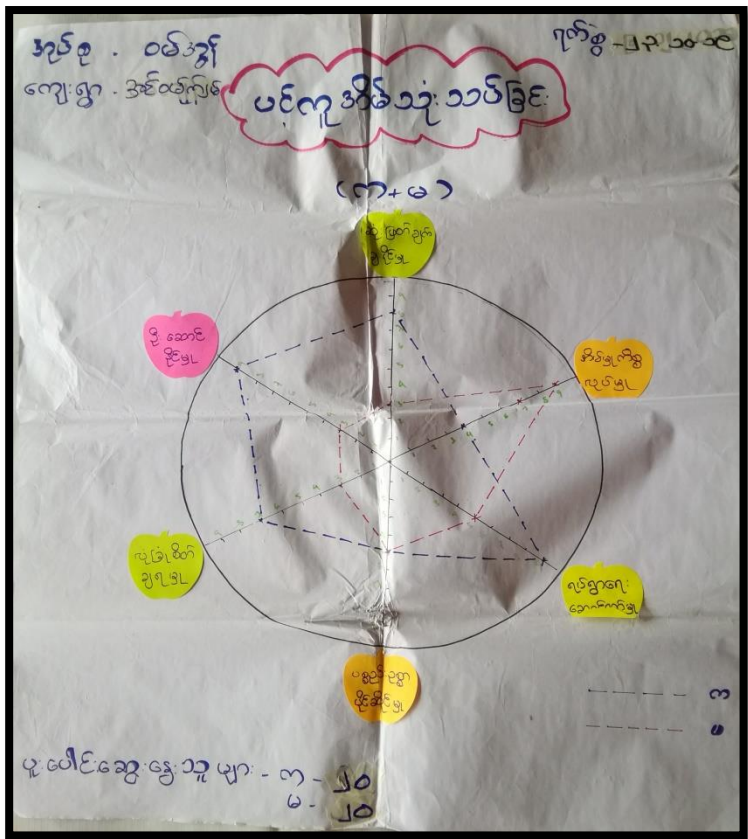 အုပ်စု - ဝမ်အွန်
ရက်စွဲ -
ကျေးရွာ -
ပင့်ကူအိမ်သုံးသပ်ခြင်း
(က+မ)
ဆုံးဖြတ်ချက်
ချနိုင်မှု
ဦးဆောင်
နိုင်မှု
အိမ်မှုကိစ္စ
လုပ်မှု
လုံခြုံစိတ်
ချရမှု
ရပ်ရွာရေး
ဆောင်ရွက်မှု
ပစ္စည်းဥစ္စာ
ပိုင်ဆိုင်မှု
က
မ
ပူးပေါင်းဆွေးနွေးသူများ - က - ၂၀
မ - ၂၀